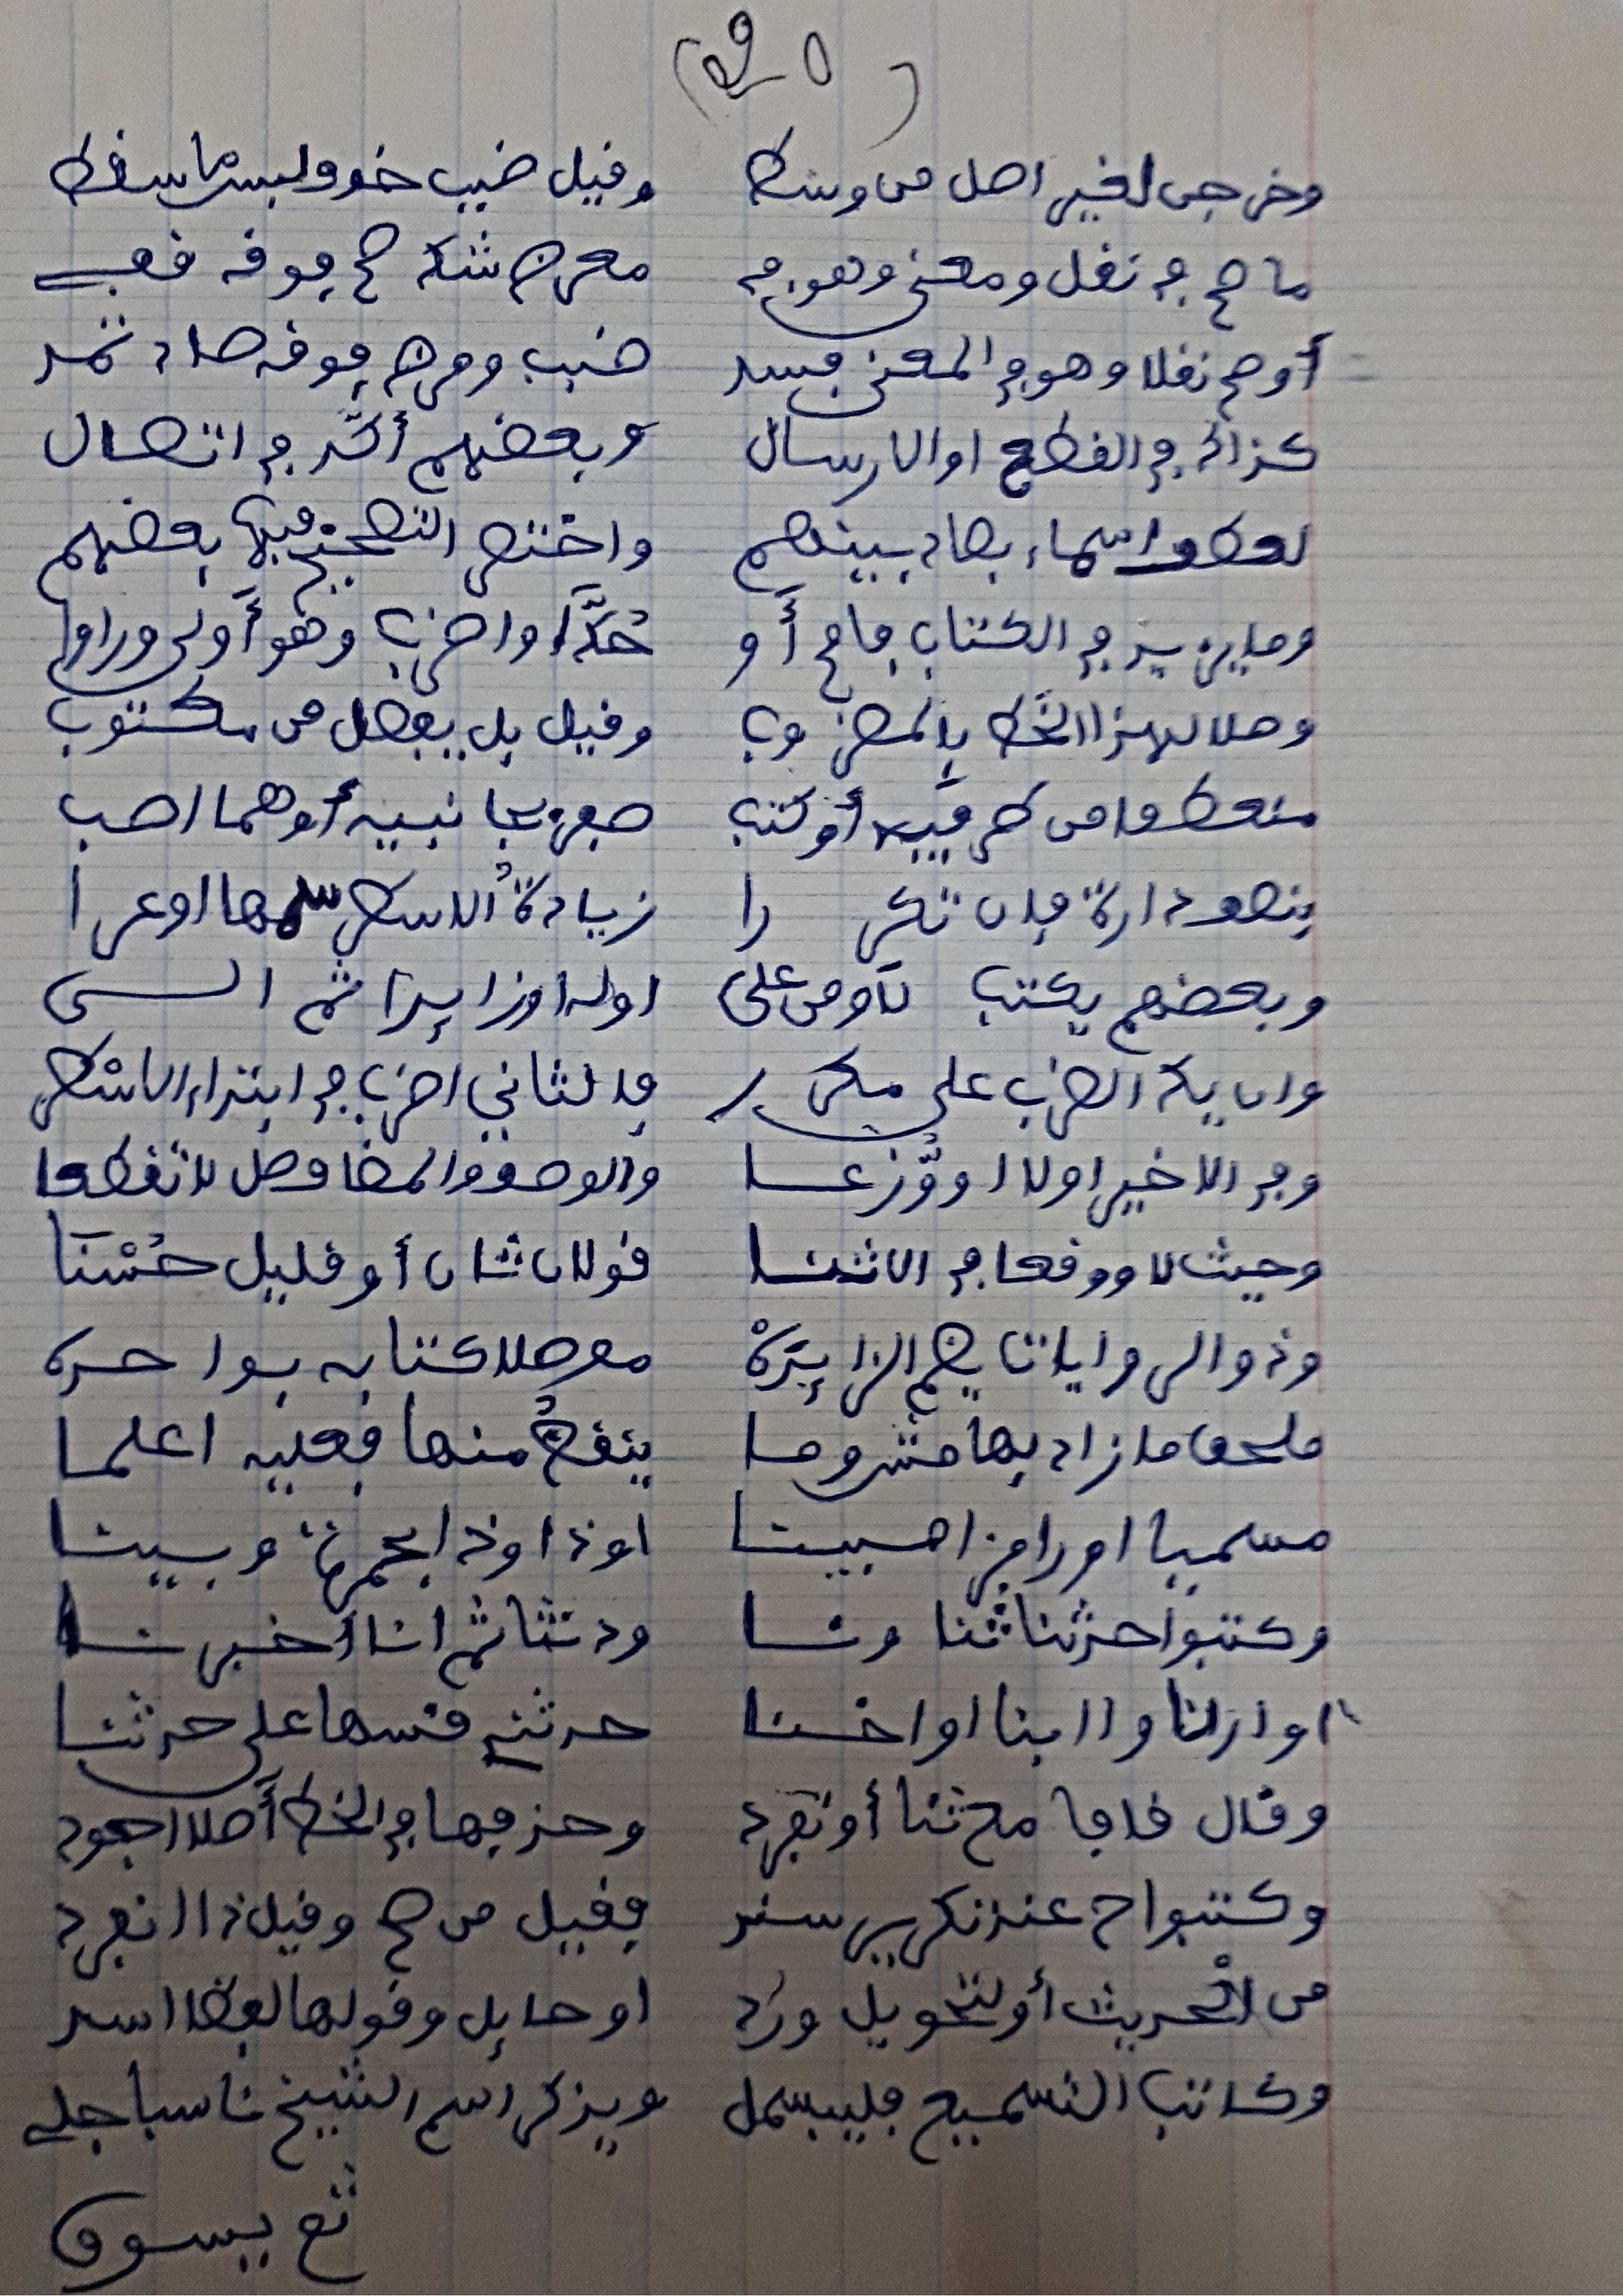 وخرجن لغير اصل من وسط وقيل ضبب خوف لبس ما سقط
ما صح في نقل ومعنى وهو في معرض شك صح فوقه قفي
أو صح نقلا وهو في المعنى فسد ضبب ومرض فوقه صاد تمد
كذاك في القطع او الارسال وبعضهم أكد في اتصال
لعطف اسماء بصاد بينهم واختصر التصحيح فيها بعضهم
وما يزيد في الكتاب فامح أو حُكَّ او اضرب وهو أولى وراوا
وصلا لهذا الخط بالمضروب وقيل بل يفصل من مكتوب
منعطفا من طرفيه أو كتب صفر بجانبيه أو هما اصب
بنصف دارة فان تكررا زيادةُ الاسطر سمها او عرا
وبعضهم يكتب لا او من على اوله او زايدا ثم الى
وان يك الضرب على مكرر فالثاني اضرب في ابتداء الاسطر
وفي الاخير اولا او وُزِّعا والوصف والمضاف صل لا تقطعا
وحيث لا ووقعا في الاثنا قولان ثان أو قليل حُسْنَا
وذو الروايات يضم الزايدَهْ موصلا كتابه بواحده
ملحق ما زاد بهامش وما ينقصُ منها فعليه اعلما
مسميا او رامزا مبينا او ذا وذا بحمرة وبينا
وكتبوا حدثنا ثنا ونا ودثنا ثم انا أخبرنا
او ارنا او ابنا او اخنا حدثني قسها على حدثنا
وقال قافا مع ثنا أو تفرد وحذفها في الخط أصلا اجود
وكتبوا ح عند تكرير سند فقيل من صح وقيل ذا انفرد
من الحديث أو لتحويل ورد او حايل وقولها لفظا اسد
وكاتب التسميع فليبسمل ويذكر اسم الشيخ ناسبا جلي
ثم يسوق